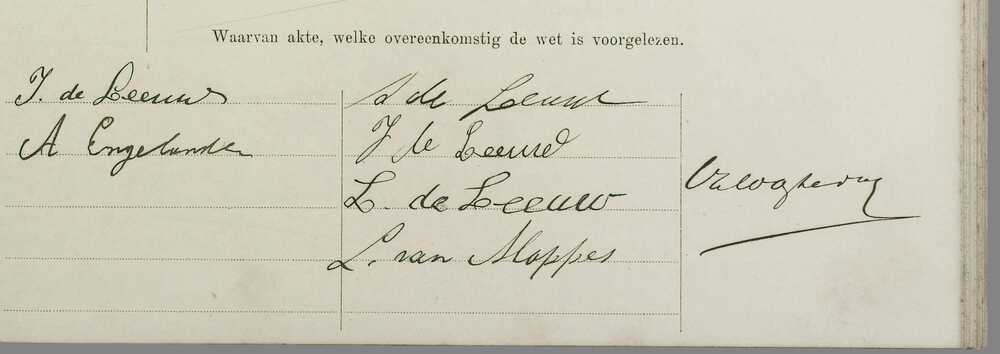 Waarvan akte, welke overeenkomstig de wet is voorgelezen.
J. de Leeuw
A Engelander
S de Leeuw
J de Leeuw
L. de Leeuw
L. van Moppes